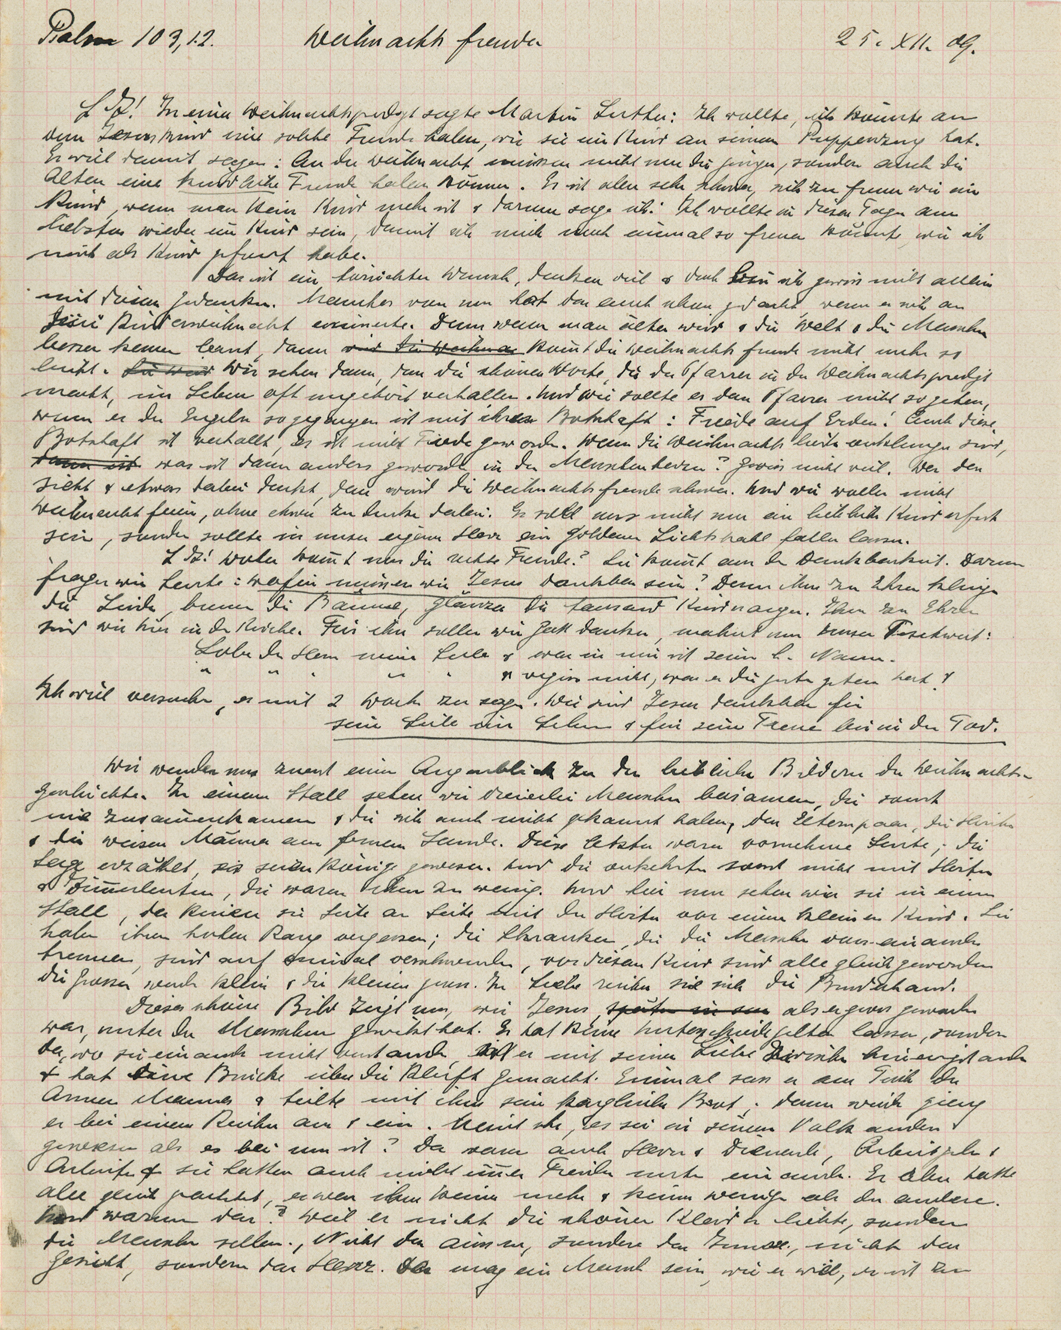 Psalm 103,1.2. Weihnachtsfreude 25. XII. 09.
L Z! In einer Weihnachtspredigt sagte Martin Luther: Ich wollte, ich könnte an
dem Jesuskind eine solche Freude haben, wie sie ein Kind an seinem Puppenzeug hat.
Er will damit sagen: An der Weihnacht müssen nicht nur die jungen, sondern auch die
Alten eine kindliche Freude haben können. Es ist aber sehr schwer, sich zu freuen wie ein
Kind, wenn man kein Kind mehr ist & darum sage ich: Ich wollte in diesen Tagen am
liebsten wieder ein Kind sein, damit ich mich noch einmal so freuen könnte, wie ich
mich als Kind gefreut habe.
Das ist ein törichter Wunsch, denken viel & doch bin ich gewiss nicht allein
mit diesem Gedanken. Mancher von uns hat das auch schon gedacht, wenn er sich an
seine Kinderweihnacht erinnerte. Denn wenn man älter wird & die Welt & die Menschen
besser kennen lernt, dann kommt die Weihnachtsfreude nicht mehr so
leicht. Wir sehen dann, dass die schönen Worte, die der Pfarrer in der Weihnachtspredigt
macht, im Leben oft ungehört verhallen. Und wie sollte es dem Pfarrer nicht so gehen,
wenn es den Engeln so gegangen ist mit ihrer Botschaft: Friede auf Erden! Auch diese
Botschaft ist verhallt, es ist nicht Friede geworden. Wenn die Weihnachtslieder verklungen sind,
was ist dann anders geworden in den Menschenherzen? Gewiss nicht viel. Wer das
sieht & etwas dabei denkt, dem wird die Weihnachtsfreude schwer. Und wir wollen nicht
Weihnacht feiern, ohne etwas zu denken dabei. Es soll uns nicht nur ein liebliches Kinderfest
sein, sondern sollte in unser eigenes Herz ein goldener Lichtstrahl fallen lassen.
L Z! woher kommt uns die rechte Freude? Sie kommt aus der Dankbarkeit. Darum
fragen wir heute: wofür müssen wir Jesus dankbar sein? Denn ihm zu Ehren klingen
die Lieder, brennen die Bäume, glänzen die tausend Kinderaugen. Ihm zu Ehren
sind wir hier in der Kirche. Für ihn sollen wir Gott danken, mahnt uns unser Textwort:
Lobe den Herrn meine Seele & was in mir ist seinen h. Namen.
" " " " & vergiss nicht, was er dir gutes getan hat!
Ich will versuchen, es mit 2 Worten zu sagen. Wir sind Jesus dankbar für
seine Liebe im Leben & für seine Treue bis in den Tod.
Wir wenden uns zuerst einen Augenblick zu den lieblichen Bildern der Weihnachts-
geschichte. In einem Stall sehen wir dreierlei Menschen beisamen, die sonst
nie zusammenkamen & die sich auch nicht gekannt haben, das Elternpaar, die Hirten
& die weisen Männer aus fernem Lande. Diese letzten waren vornehme Leute; die
Sage erzählt, es seien Könige gewesen. Und die verkehrten sonst nicht mit Hirten
& Zimmerleuten, die waren ihnen zu wenig. Und hier nun sehen wir sie in einem
Stall, da knieen sie Seite an Seite mit den Hirten vor einem kleinen Kind. Sie
haben ihren hohen Rang vergessen; die Schranken, die die Menschen von einander
trennen, sind auf einmal verschwunden, vor diesem Kind sind alle gleich geworden
die Grossen werden klein & die kleinen gross. In Liebe reichen sie sich die Bruderhand.
Dieses schöne Bild zeigt uns, wie Jesus, als er gross geworden
war, unter den Menschen gewirkt hat. Er hat keine Unterschiede gelten lassen, sondern
da, wo sie einander nicht verstanden, ist er mit seiner Liebe
& hat eine Brücke über die Kluft gemacht. Einmal sass er am Tisch des
Armen Mannes & teilte mit ihm sein kärgliches Brot, dann wieder ging
er bei einem Reichen aus & ein. Meint ihr, es sei in seinem Volk anders
gewesen als es bei uns ist? Da waren auch Herren & Dienende, Arbeitgeber &
Arbeiter & sie hatten auch nicht immer Frieden unter einander. Er aber hatte
alle gleich geachtet, es war ihm keiner mehr & keiner weniger als der andere.
Und warum das? Weil er nicht die schönen Kleider liebte, sondern
die Menschen selber, Nicht das äussere, sondern das Innere, nicht das
Gesicht, sondern das Herz. Da mag ein Mensch sein, wie er will, es ist zu